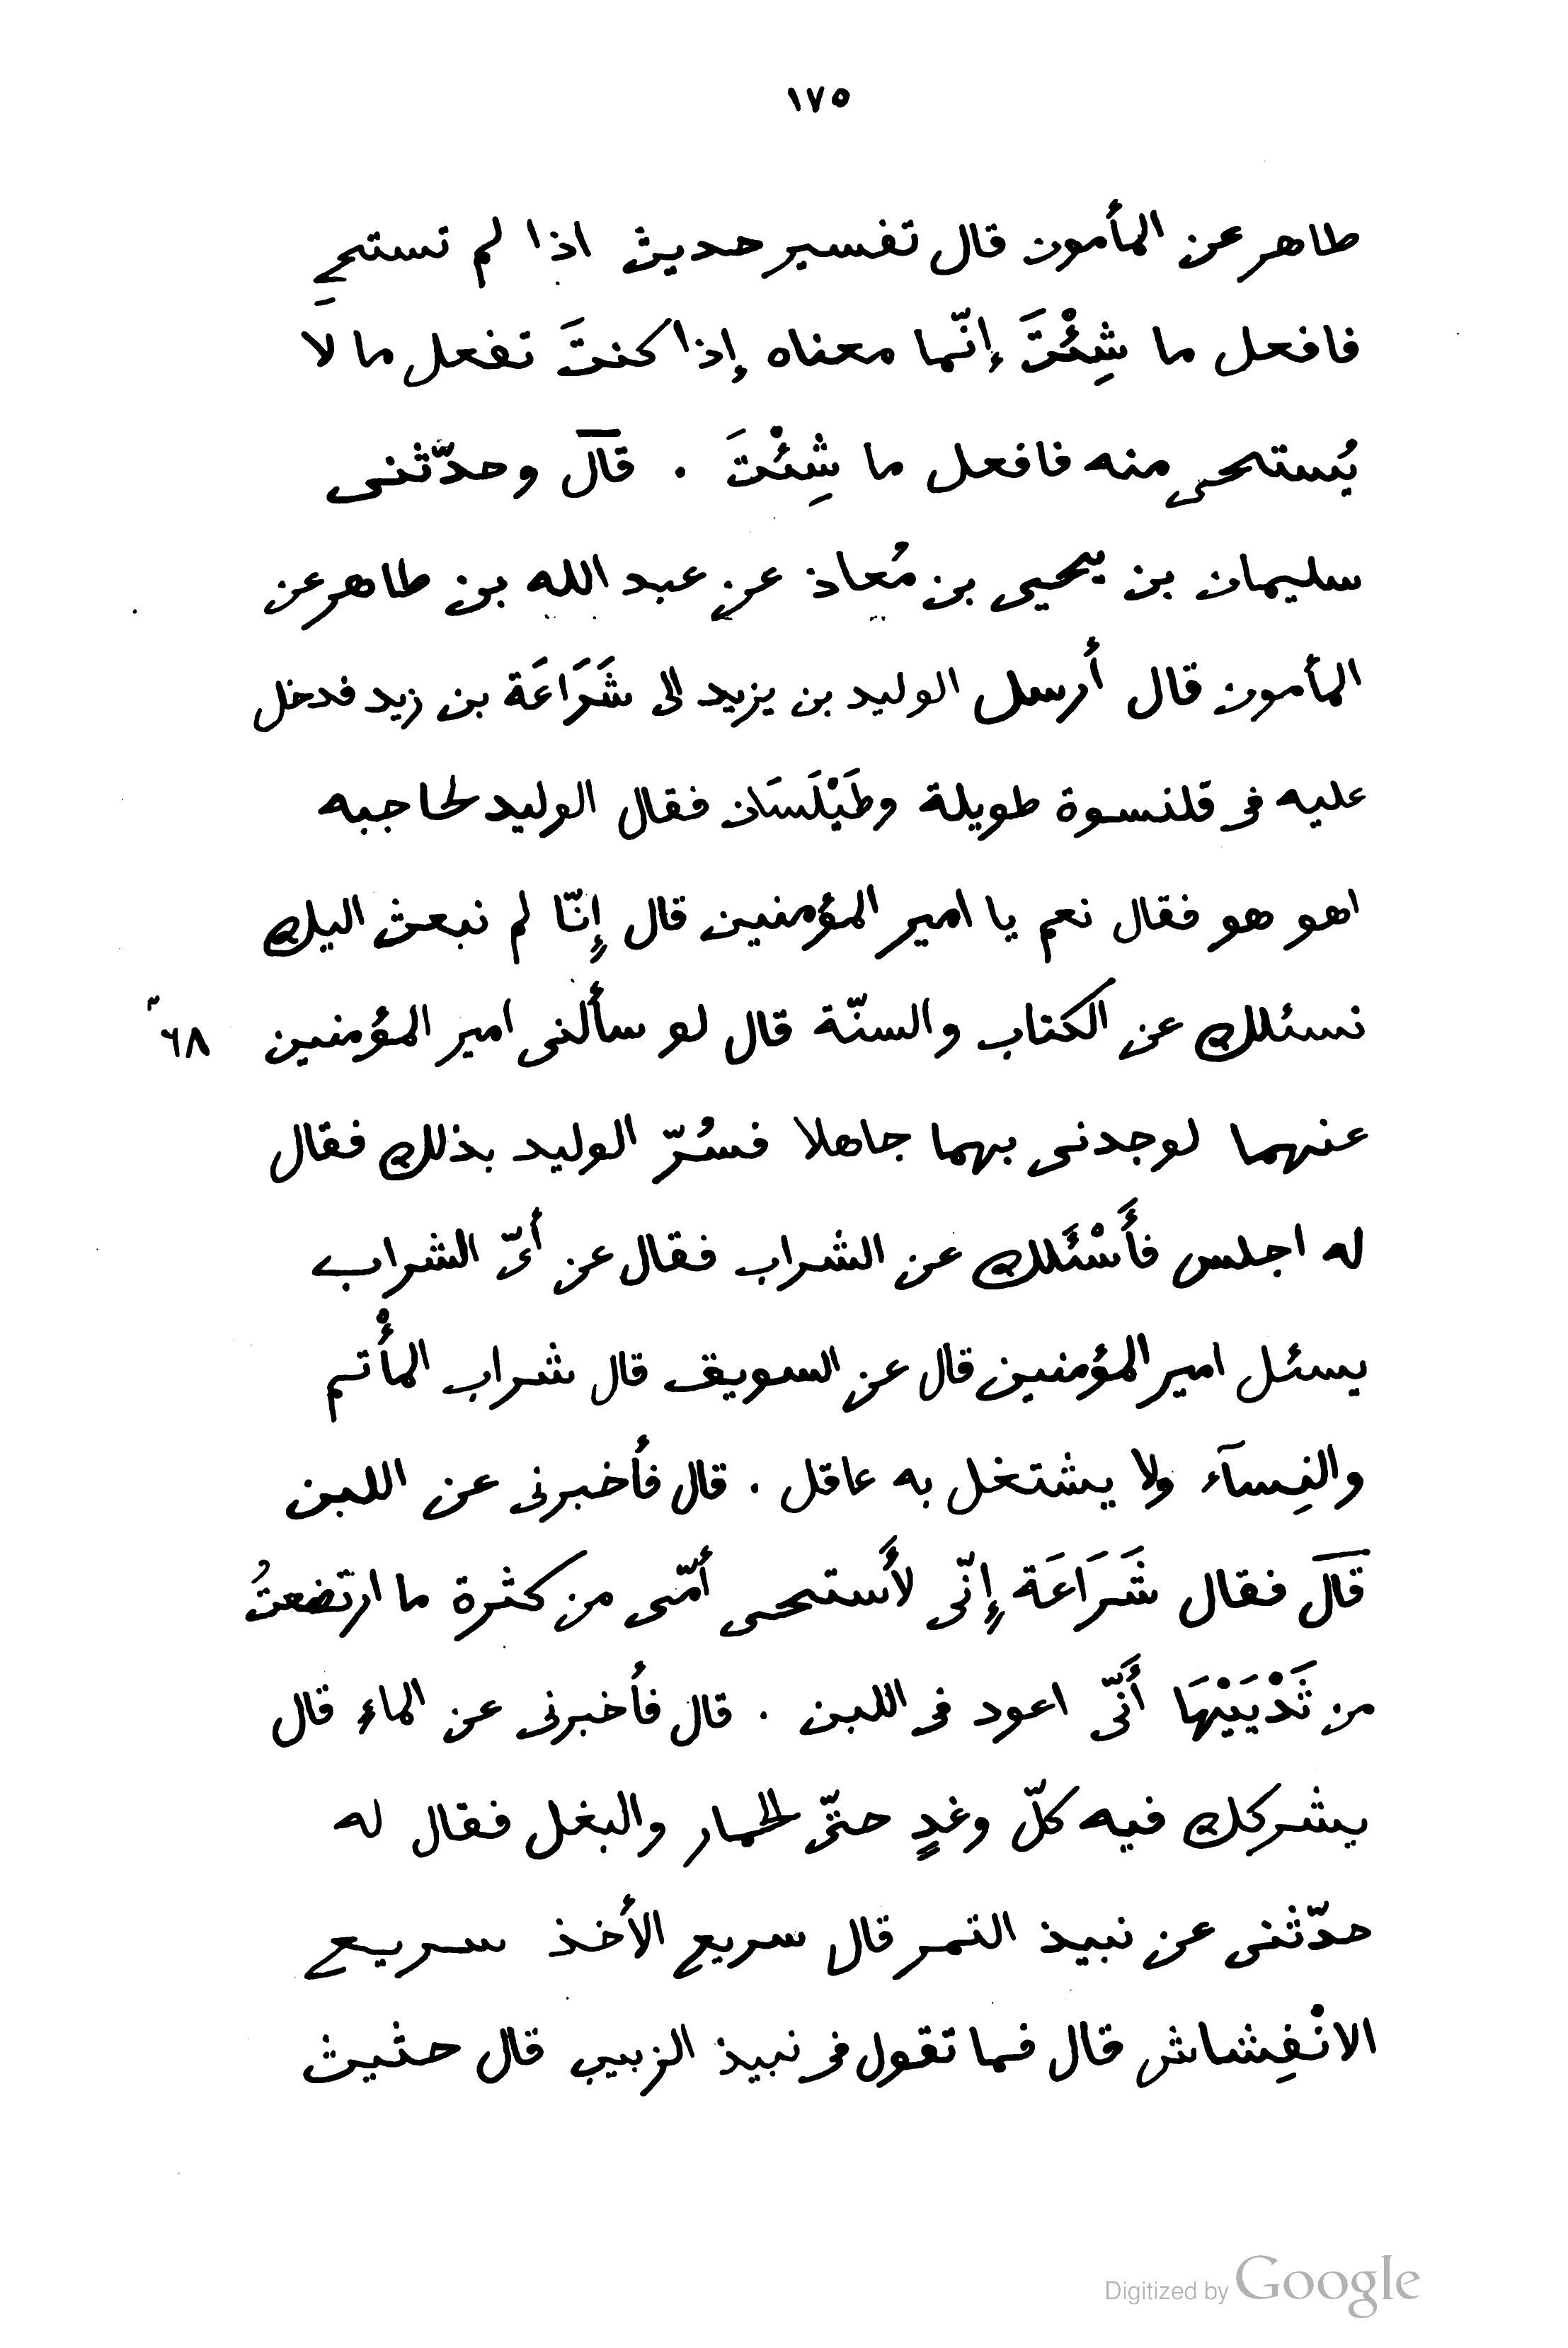 ١٧٥
طاهر عن المأمون قال تفسير حديث اذا لم تستحىِ
فافعل ما شِئْتَ إنّما معناه إذا كنتَ تفعل ما لا
يُستحى منه فافعل ما شِئْتَ . قال وحدّثنى
سليمان بن يحيى بن مُعاذ عن عبد الله بن طاهر عن
المأمون قال أرسل الوليد بن يزيد الى شَرَاعَة بن زيد فدخل
عليه فى قلنسوة طويلة وطَيْلَسَان فقال الوليد لحاجبه
اهو هو فقال نعم يا امير المؤمنين قال إِنّا لم نبعث اليك
نسئلك عن الكتاب والسنّة قال لو سألنى امير المؤمنين ٦٨
عنهما لوجدنى بهما جاهلا فسُرّ الوليد بذلك فقال
له اجلس فأَسْئَلك عن الشراب فقال عن أىّ الشراب
يسئل امير المؤمنين قال عن السويق قال شراب المأْتم
والنِساَء ولا يشتغل به عاقل . قال فأخبرنى عن اللبن
قَال فقال شَرَاعَة إِنّى لأَستحى أمّى من كثرة ما ارتضعتُ
من ثَدْيَيْهَا أَنّى اعود فى اللبن . قال فأخبرنى عن الماء قال
يشركك فيه كلّ وغدٍ حتّى الحمار والبغل فقال له
حدّثنى عن نبيذ التمر قال سريع الأخذ سريع
الانْفِشاش قال فما تقول فى نبيذ الزبيب قال حثيث
Digitized by Google